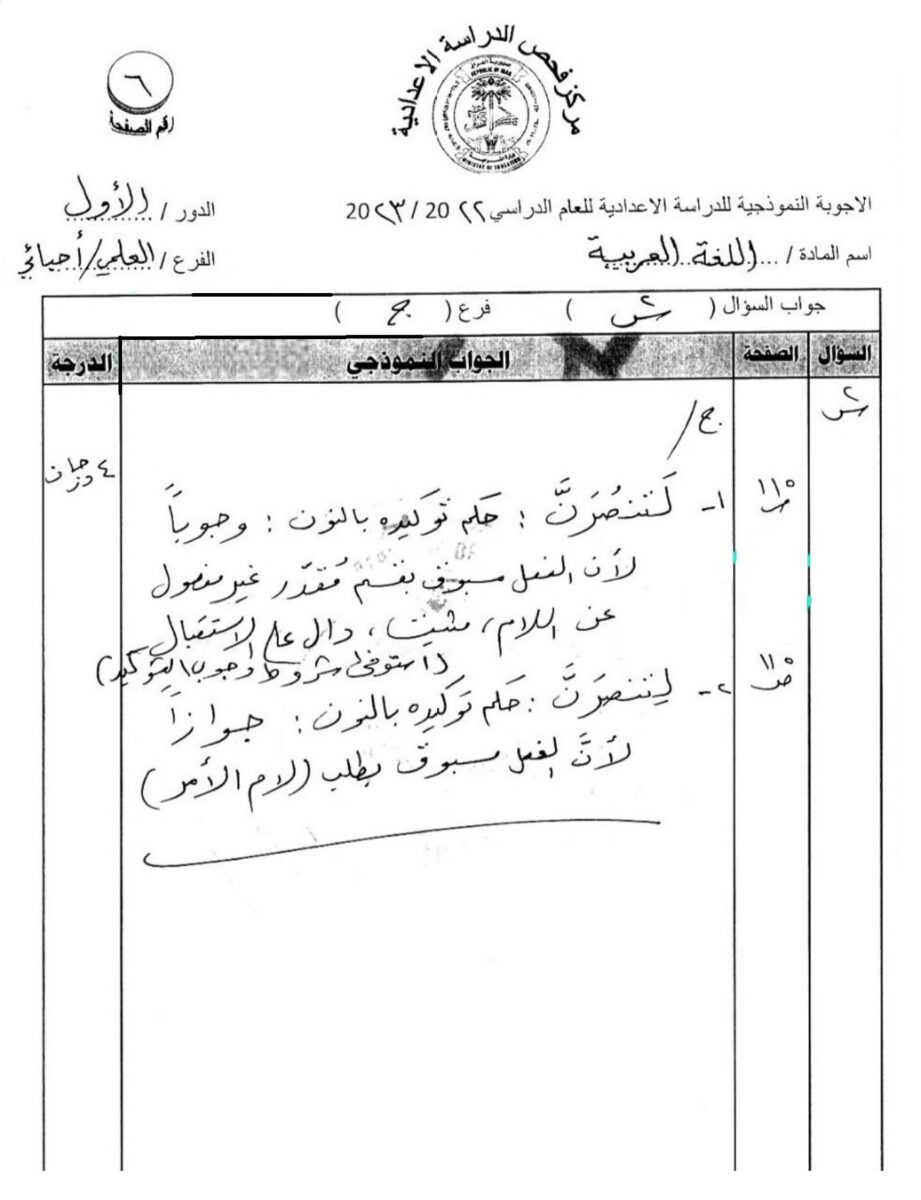 مركز فحص الدراسة الاعدادية
جمهورية العراق
REPUBLIC OF IRAQ
وزارة التربية
MINISTRY OF EDUCATION
٦
رقم الصفحة
الاجوبة النموذجية للدراسة الاعدادية للعام الدراسي ٢٢ 20 / ٢٣ 20
الدور / الأول
اسم المادة / ... اللغة العربية
الفرع / العلمي / أحيائي
جواب السؤال ( س ) فرع ( ج )
السؤال الصفحة الجواب النموذجي الدرجة
س٢
ج /
٤ درجات
ص ١١٥
١- لَتنصُرَنَّ : حكم توكيده بالنون : وجوباً
لأن الفعل مسبوق بقسم مُقدّر غير مفصول
عن اللام ، مثبت ، دال على الاستقبال
( استوفى شروط وجوب التوكيد )
ص ١١٥
٢- لِتنصرَنَّ : حكم توكيده بالنون : جوازاً
لأنَّ الفعل مسبوق بطلب ( لام الأمر )